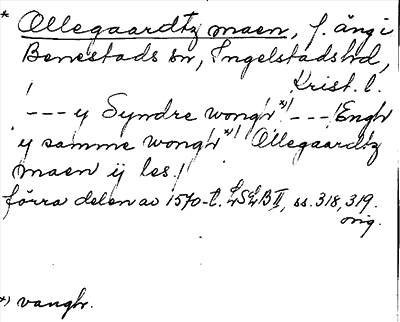 * Ollegaardtz maen, f. äng i
Benestads sn, Ingelstads hd,
Krist. l.
! --- y Syndre wongh*)! --- ! Engh
y samme wongh*)! Ollegaardtz
maen ij les!
förra delen av 1570-t. LSLB II, ss. 318, 319.
orig.
*) vangh.